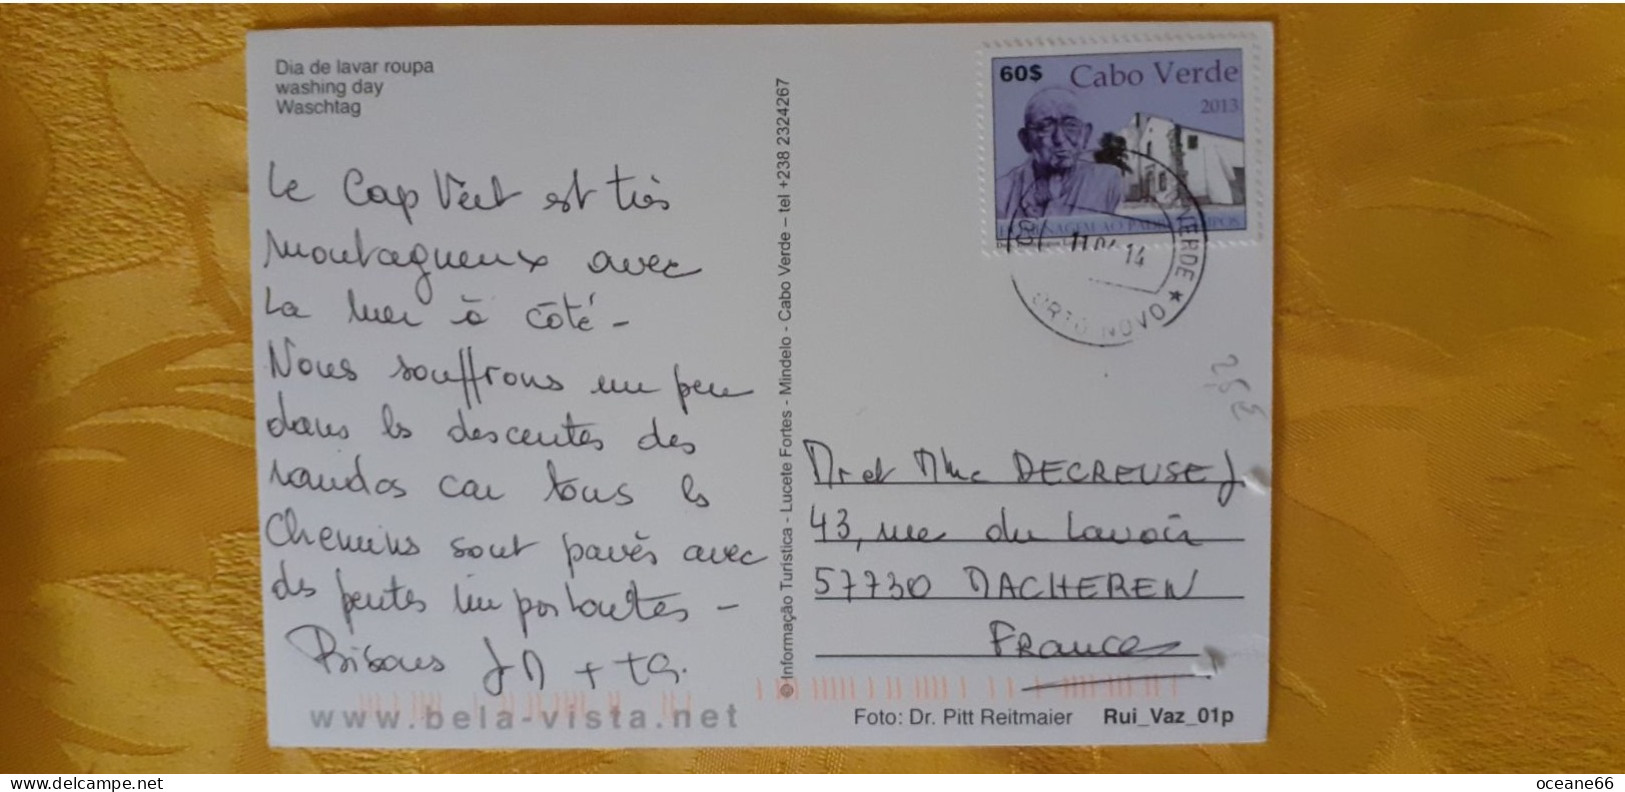 Dia de lavar roupa
washing day
Waschtag
Le Cap Vert est très
montagneux avec
la mer à côté -
Nous souffrons un peu
dans les descentes des
randos car tous les
chemins sont pavés avec
des pentes importantes -
Bisous JM +
www.bela-vista.net
© Informação Turística - Lucete Fortes - Mindelo - Cabo Verde – tel +238 2324267
60$ Cabo Verde
2013
HOMENAGEM AO PADRE CAMPOS
VERDE ★
14
PORTO NOVO
Mr et Mme DECREUSE J.
43, rue du Lavoir
57730 MACHEREN
France
Foto: Dr. Pitt Reitmaier Rui_Vaz_01p
oceane66